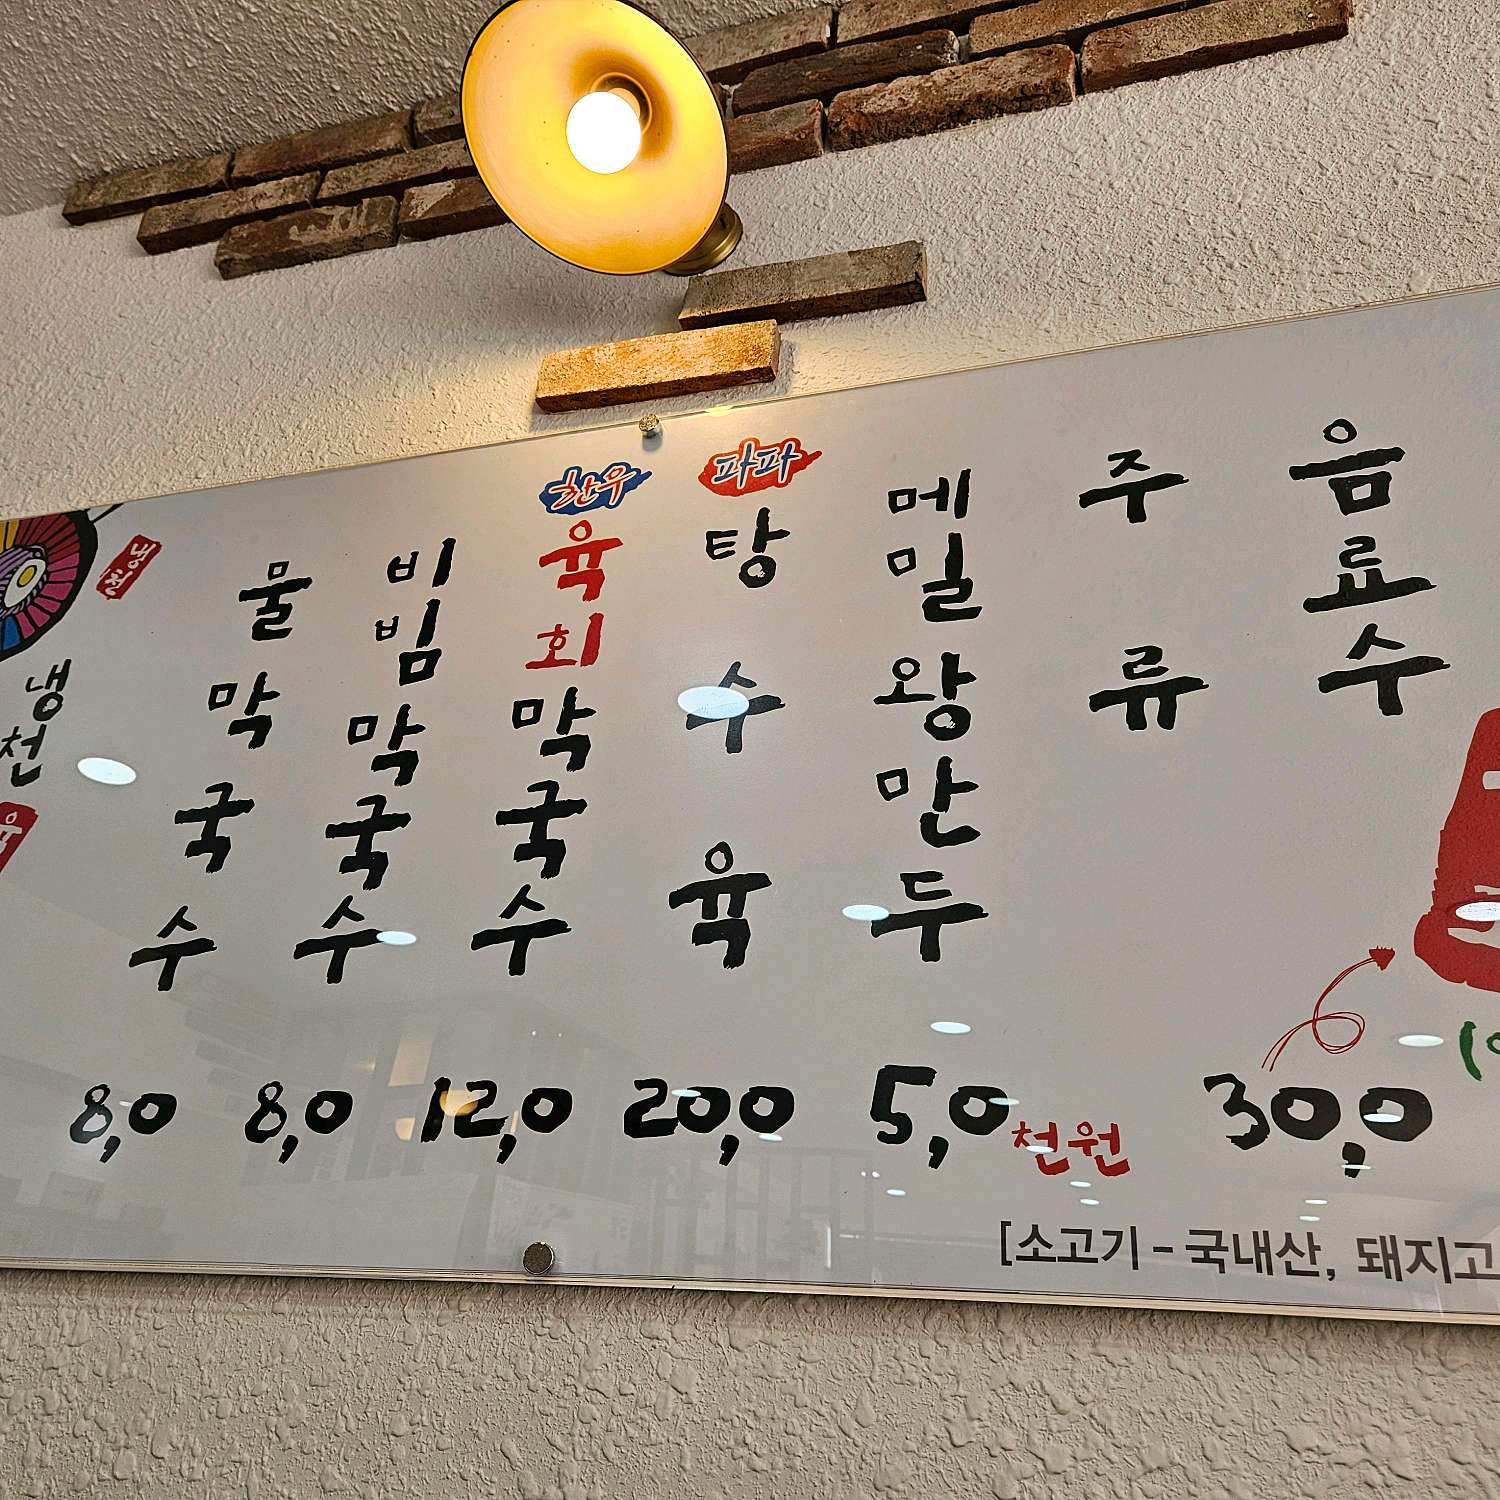 냉천
냉천
물막국수
8,0
비빔막국수
8,0
한우
육회막국수
12,0
파파
탕수육
20,0
메밀왕만두
5,0천원
주류
음료수
30,0
[소고기-국내산, 돼지고